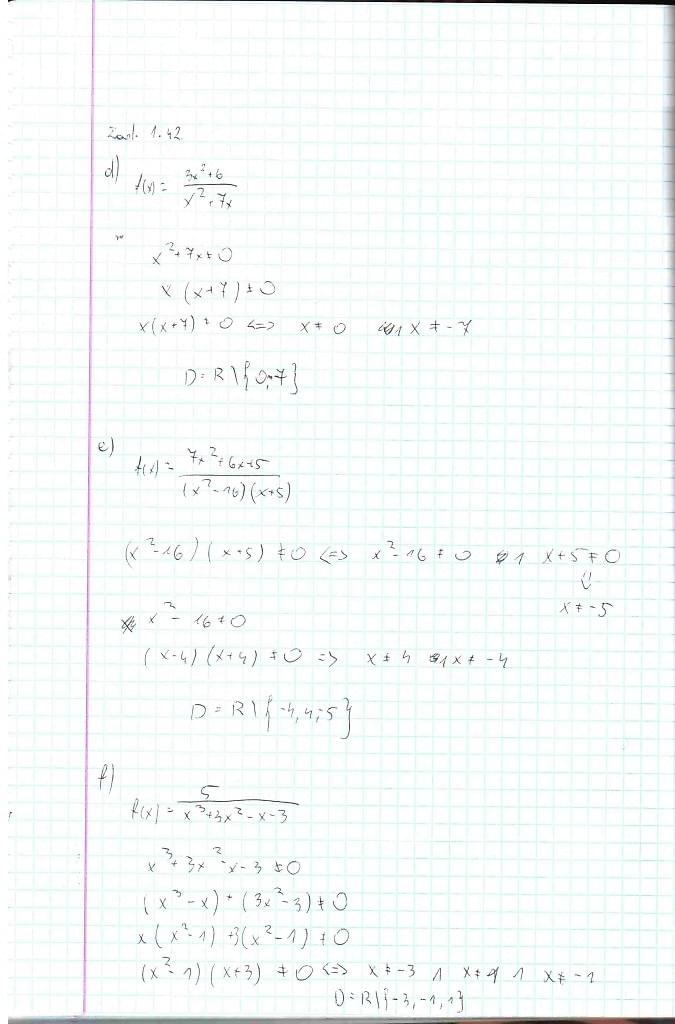 Zad. 1.42
d) f(x) = \frac{3x^2+6}{x^2+7x}
x^2+7x≠0
x (x+7) ≠ 0
x(x+7) ≠ 0 <=> x ≠ 0 ∧ x ≠ -7
D = R \ {0,-7}
e) f(x) = \frac{7x^2+6x+5}{(x^2-16)(x+5)}
(x^2-16)(x+5) ≠ 0 <=> x^2-16 ≠ 0 ∧ x+5 ≠ 0
⇓
x ≠ -5
x^2 - 16 ≠ 0
(x-4)(x+4) ≠ 0 => x ≠ 4 ∧ x ≠ -4
D = R \ {-4, 4, -5}
f) f(x) = \frac{5}{x^3+3x^2-x-3}
x^3+3x^2-x-3 ≠ 0
(x^3-x) + (3x^2-3) ≠ 0
x(x^2-1) + 3(x^2-1) ≠ 0
(x^2-1)(x+3) ≠ 0 <=> x ≠ -3 ∧ x ≠ 1 ∧ x ≠ -1
D = R \ {-3, -1, 1}